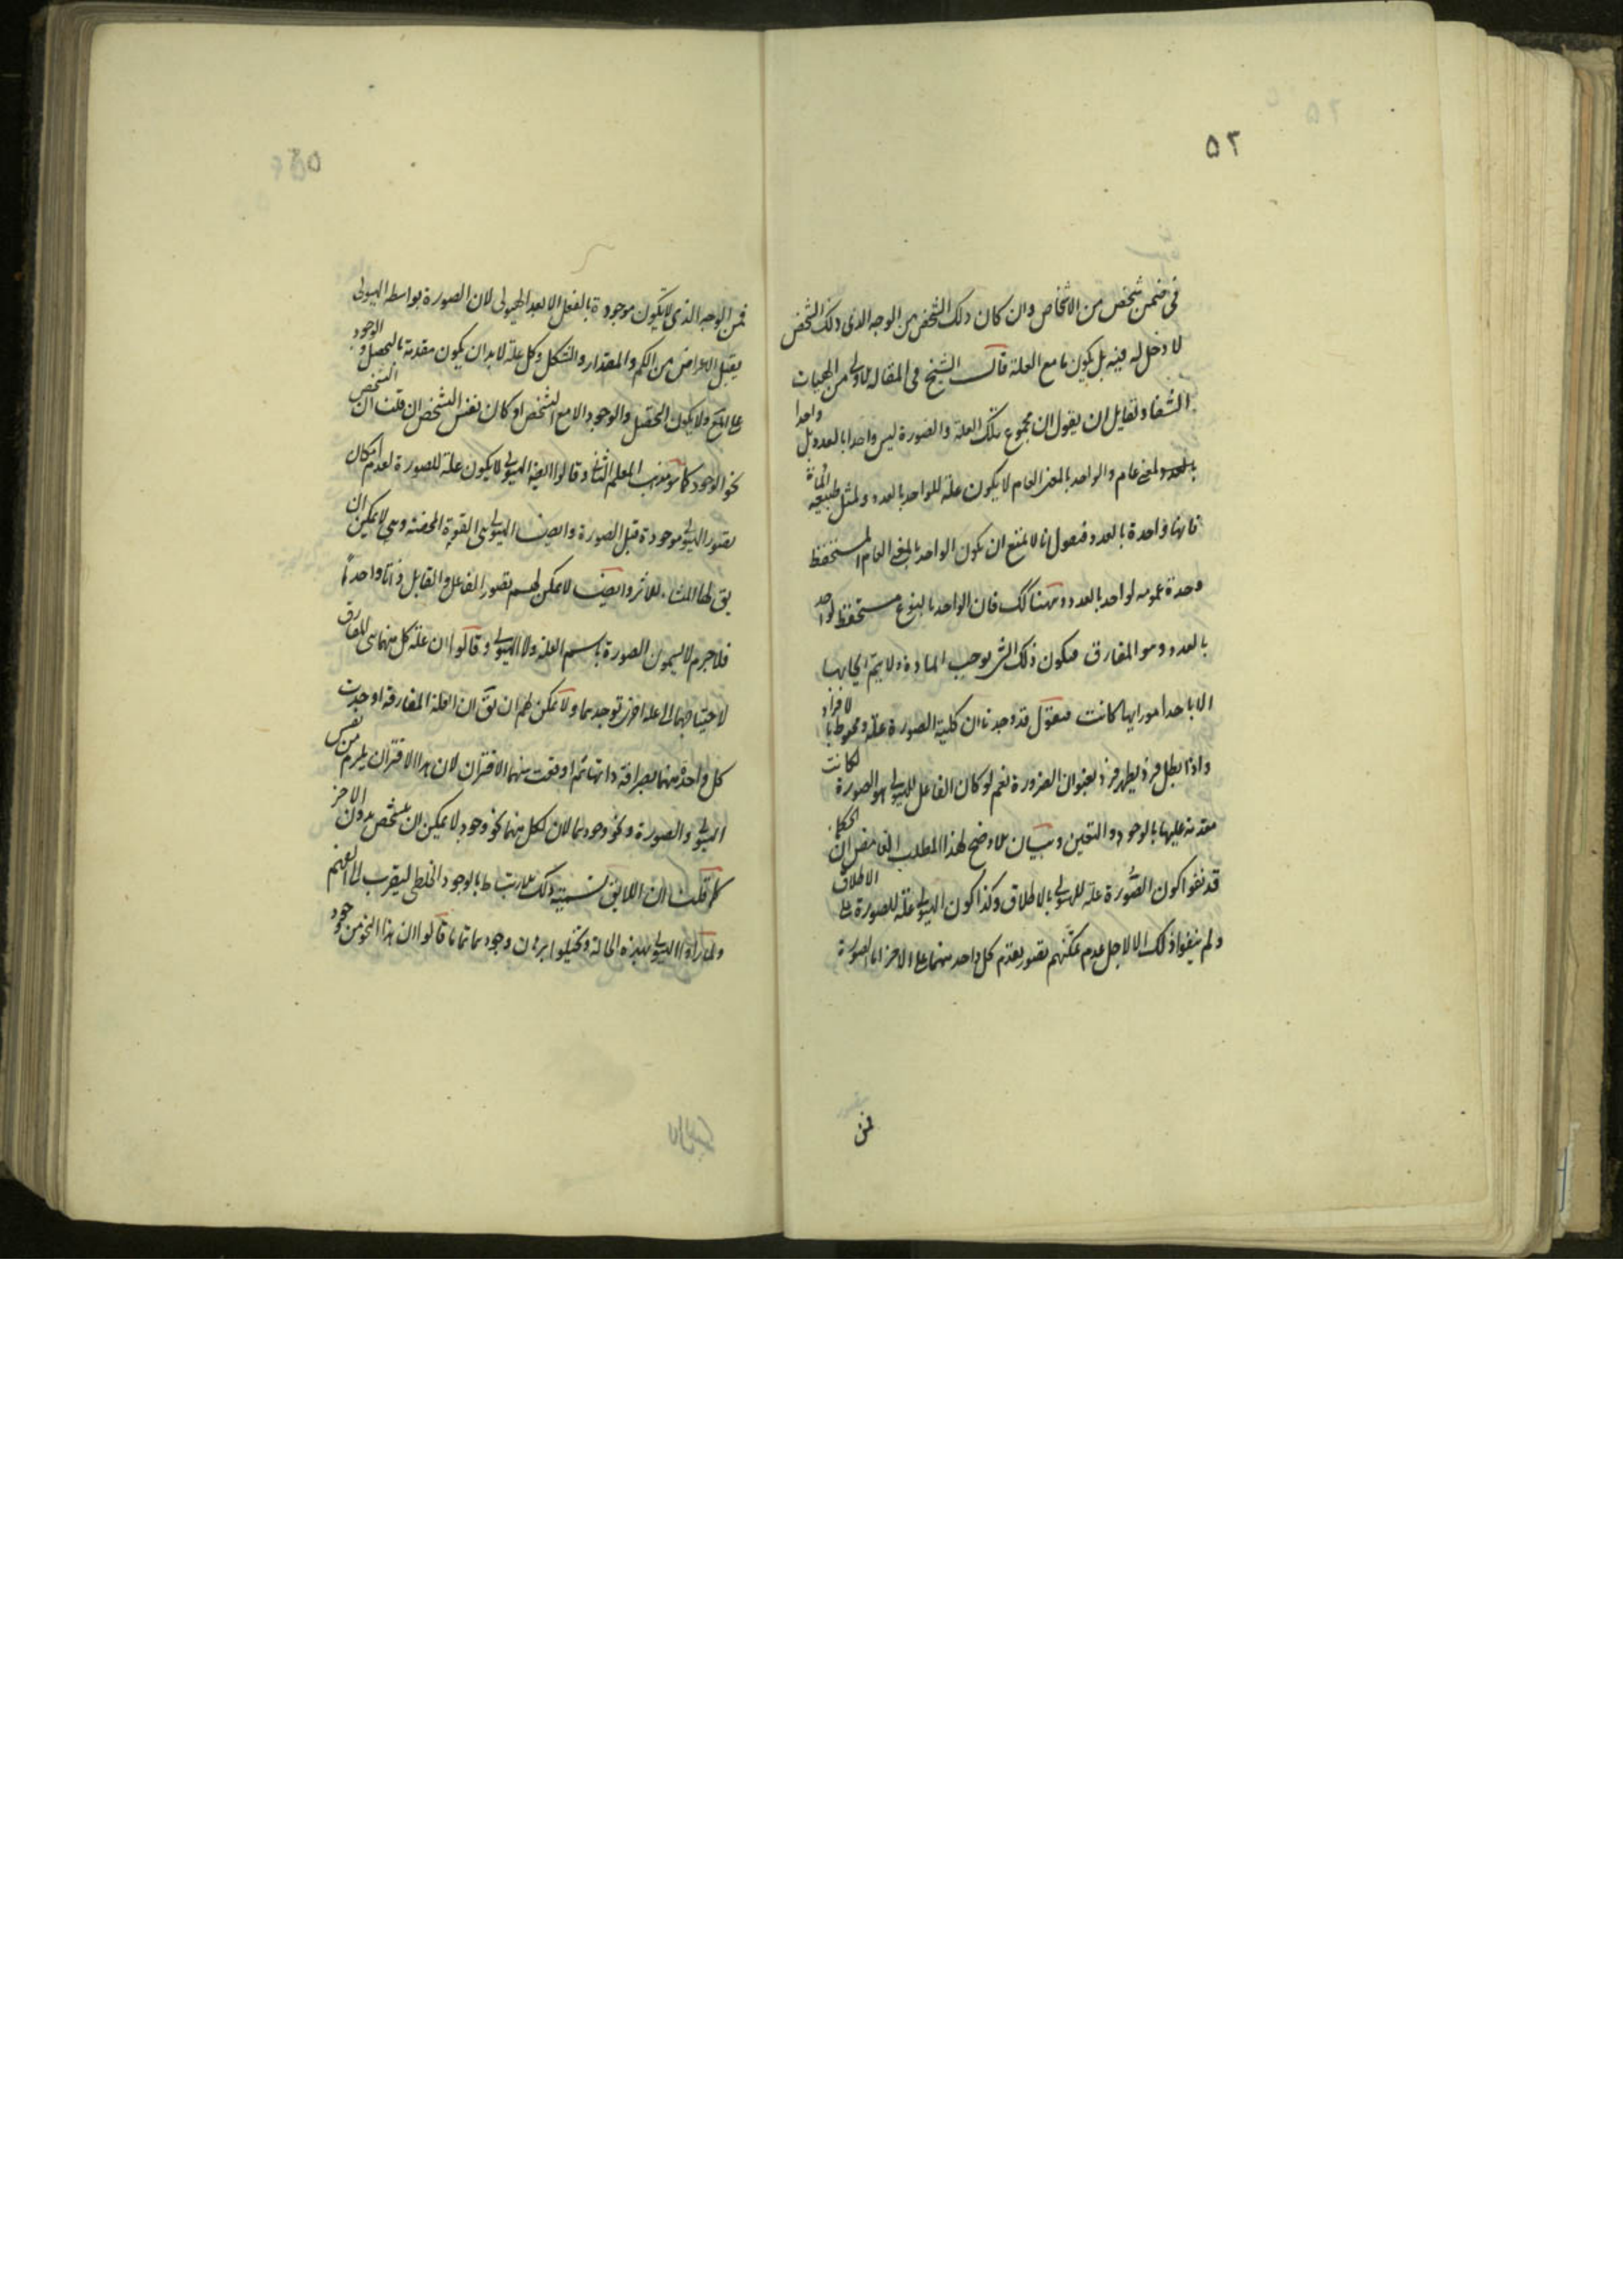 ٥٢
فی ضمن شخص من الاشخاص وان کان ذلک الشخص من الوجه الذی ذلک الشخص
لا دخل له فیه بل یکون ما مع العلة قال الشیخ فی المقاله الاولی من الهیات
الشفا ولقایل ان یقول ان مجموع تلک العلة والصورة لیس واحدا بالعدد بل واحدا
بالمعنی عام والواحد بالمعنی العام لا یکون علة للواحد بالعدد ولمثل طبیعة المادة
فانها واحدة بالعدد فنقول انا لا نمنع ان یکون الواحد بالمعنی العام المستحفظ
وحدة عمومه لواحد بالعدد وههنا کک فان الواحد بالنوع مستحفظ لواحد
بالعدد وهو المفارق فیکون ذلک الشی یوجب المادة ولا یتم ایجابها
الا باحد امور ایها کانت فنقول قد وجدنا ان کلیة الصورة علة ومحوطه بالافراد
واذا بطل فرد یظهر فرد بعنوان الضرورة نعم لو کان الفاعل للهیولی هو الصورة لکانت
مقدمة علیها بالوجود والتعین وبیان الاوضح لهذا المطلب الغامض ان الحکماء
قد نفوا کون الصورة علة للهیولی بالاطلاق وکذا کون الهیولی علة للصورة علی الاطلاق
ولم ینفوا ذلک الا لاجل عدم تمکنهم تصور تقدم کل واحد منهما علی الاخر اما الصورة
فمن
فمن الوجه الذی لا یکون موجودة بالفعل الا بعد الهیولی لان الصورة بواسطه الهیولی
یقبل الاعراض من الکم والمقدار والشکل وکل علة لا بد ان یکون مقدمة بالتحصل والوجود
ولا یکون التحصل والوجود الا مع التشخص او کان نفس التشخص ان قلت ان التشخص
نحو الوجود کما هو مذهب المعلم الثانی وقالوا ایضا الهیولی لا یکون علة للصورة لعدم امکان
تصور الهیولی موجودة قبل الصورة وایضا الهیولی هی القوة المحضة وهی لا یمکن ان
یق لها المنشاء للاثر وایضا لا یمکن لهم تصور الفاعل والقابل ذاتا واحدة
فلا جرم لا یسمون الصورة باسم العلة ولا الهیولی وقالوا ان علة کل منهما هی المفارق
لاحتیاجهما الی علة اخری توجدهما ولا یمکن لهم ان یق ان العلة المفارقة اوجدت
کل واحدة منهما بصرافة ذاتها ثم اوقعت بینهما الاقتران لان هذا الاقتران یلزم من نفس
الهیولی والصورة ونحو وجودهما لان لکل منهما نحو وجود لا یمکن ان یتشخص بدون الاخر
قلت ان اللایق تسمیة ذلک الارتباط بالوجود الخلطی لیقرب الی الفهم
ولما راوا الهیولی بهذه الحالة وتخیلوا وجودهما قالوا ان هذا النحو من وجود